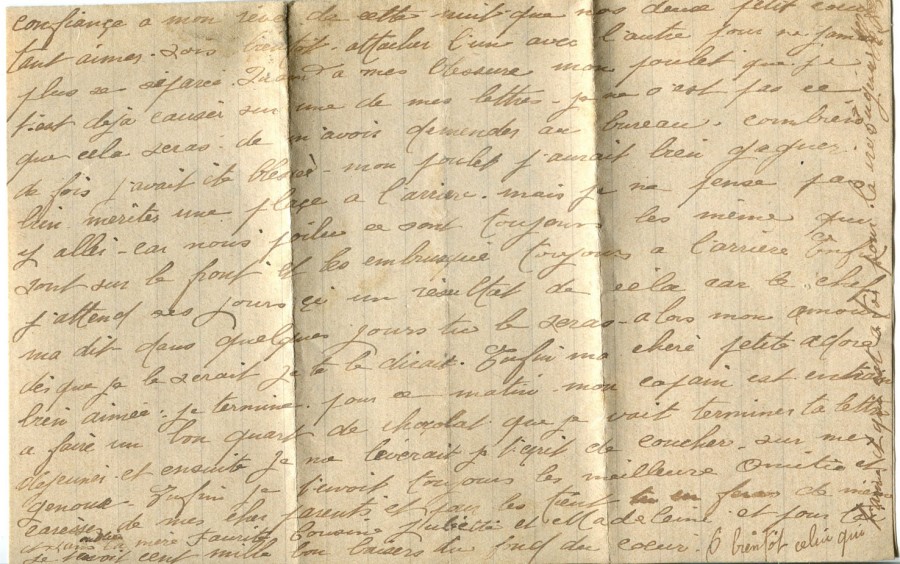 confiance a mon rêve de cette nuit que nos deux petit coeur
tant aimer. sois bientôt attacher l'un avec l'autre pour ne jam
plus se séparer. Quand a mes blessure mon poulet que je
t'est déjà causer sur une de mes lettres. je ne s'est pas ce
que cela seras. de m'avois demender au bureau. combien
de fois j'avait été blesser - mon poulet j'aurait bien gagner.
bien meriter une plaçe a l'arriere. mais je ne pense pas
y aller - car nous poilu ce sont toujours les même qui
sont sur le front et les embusquié toujours a l'arrière enf
j'attend ses jours çi un résultat de cela car le chef
ma dit dans quelques jours tu le seras - alors mon amour
dès que je le serait je te le dirait. Enfin ma chéré petite adore
bien aimée. je termine pour ce matin. mon copain est en train
a faire un bon quart de chocolat que je vait terminer ta lettre
dejeuner. et ensuite je me lèverait j't'écrit de coucher. sur me
genoux. Enfin je t'envoit toujours les meilleure Amitié et
caresse de mes cher parents et pour les tient de même
et dans mère Cousine Juliette et Madeleine. et pour toi
Je t'envoit cent mille bon baisers du fond du coeur. A bientôt celui qui